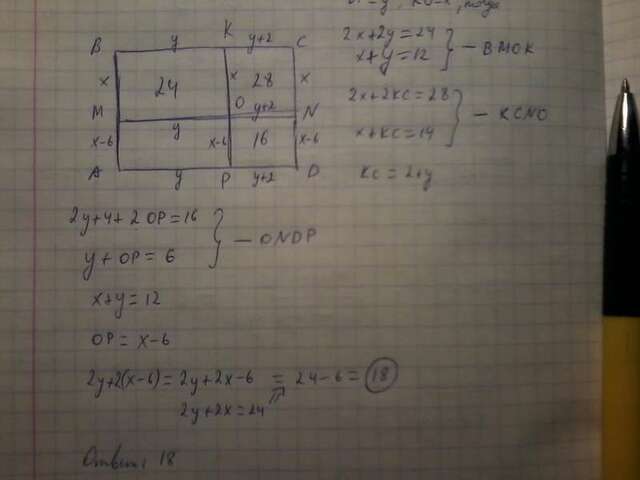 тогда
B y K y+2 C
x 24 x 28 x
M O y+2 N
x-6 y x-6 16 x-6
A y P y+2 D
2x+2y=24
x+y=12
— BMOK
2x+2KC=28
x+KC=14
— KCNO
KC=2+y
2y+4+2OP=16
y+OP=6
— ONDP
x+y=12
OP=x-6
2y+2(x-6)=2y+2x-6 = 24-6=18
2y+2x=24
Ответ: 18